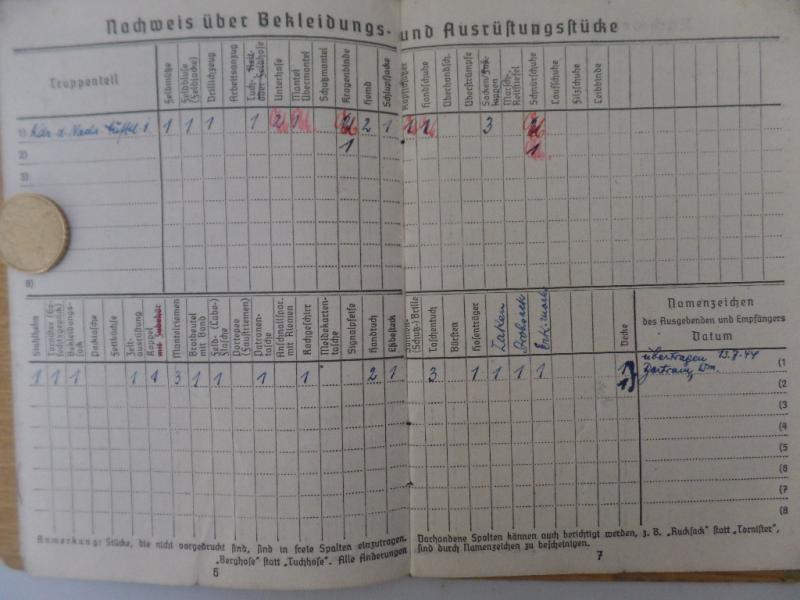 Nachweis über Bekleidungs- und Ausrüstungsstücke
Truppenteil
Feldmütze
Feldbluse (Feldjacke)
Drillichzeug
Arbeitsanzug
Tuch- Reit- oder Feldhose
Unterhose
Mantel Übermantel
Schutzmantel
Kragenbinde
Hemd
Schlupfjacke
Kopfschützer
Handschuhe
Überhandsch.
Überstrümpfe
Socken
Marsch- Reitstiefel
Schnürschuhe
Laufschuhe
Skischuhe
Leibbinde
1) 1 1 1 1 2 1 2 1 3
2) 1 1
3)
8)
Stahlhelm
Tornister
Bekleidungssack
Packtasche
Zeltausrüstung
Koppel mit Zubehör
Mantelriemen
Brotbeutel mit Band
Feld- (Labe-) flasche
Portepee (Faustriemen)
Patronentasche
Anschnallspor. mit Riemen
Kochgeschirr
Meldekartentasche
Signalpfeife
Handtuch
Eßbesteck
(Schutz-) Brille
Taschentuch
Bürsten
Hosenträger
Decke
Namenzeichen
des Ausgebenden und Empfängers
Datum
1 1 1 1 1 3 1 1 1 1 2 1 3 1 1 1 1 1 übertragen 13.7.44 (1
1 (2
(3
(4
(5
(6
(7
(8
Anmerkung: Stücke, die nicht vorgedruckt sind, sind in freie Spalten einzutragen. Vorhandene Spalten können auch berichtigt werden, z. B. „Rucksack" statt „Tornister",
„Berghose" statt „Tuchhose". Alle Änderungen sind durch Namenzeichen zu bescheinigen.
6 7